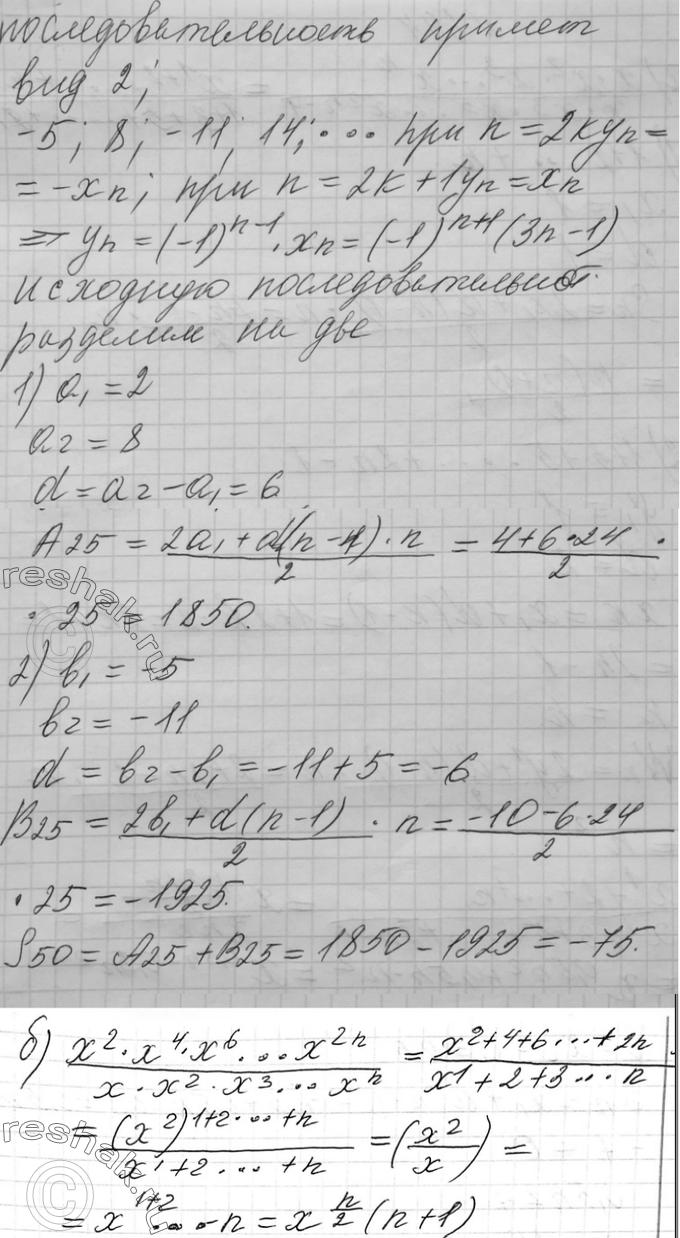 последовательность примет
вид 2;
-5; 8; -11; 14; ... при n = 2k yn =
= -xn; при n = 2k+1 yn = xn
=> yn = (-1)^{n-1} · xn = (-1)^{n+1} (3n-1)
исходную последовательност.
разделим на две
1) a₁ = 2
a₂ = 8
d = a₂ - a₁ = 6
A25 = \frac{2a₁ + d(n-1) · n}{2} = \frac{4+6·24}{2} ·
· 25 = 1850.
2) b₁ = -5
b₂ = -11
d = b₂ - b₁ = -11+5 = -6
B25 = \frac{2b₁ + d(n-1)}{2} · n = \frac{-10-6·24}{2}
· 25 = -1925.
S50 = A25 + B25 = 1850 - 1925 = -75.
б) \frac{x^2 · x^4 · x^6 · ... x^{2n}}{x · x^2 · x^3 · ... x^n} = \frac{x^{2+4+6...+2n}}{x^{1+2+3...n}}
= \frac{(x^2)^{1+2...+n}}{x^{1+2...+n}} = (\frac{x^2}{x}) =
= x^{1+2} ... n = x^{\frac{n}{2}} (n+1)
reshak.ru
reshak.ru